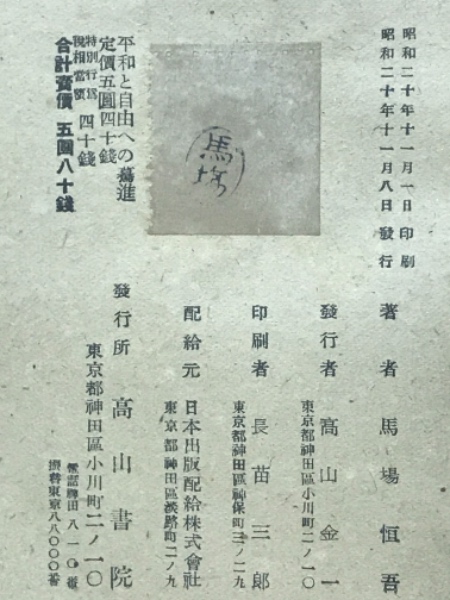 昭和二十年十一月一日印刷
昭和二十年十一月八日發行
馬場
平和と自由への驀進
定價五圓四十錢
特別行爲税相當額 四十錢
合計賣價 五圓八十錢
著者 馬場恒吾
發行者 高山金一
東京都神田區小川町二ノ一〇
印刷者 長苗三郎
東京都神田區神保町三ノ二九
配給元 日本出版配給株式會社
東京都神田區淡路町二ノ九
發行所 高山書院
東京都神田區小川町二ノ一〇
電話神田 八一〇番
振替東京八八〇〇〇番